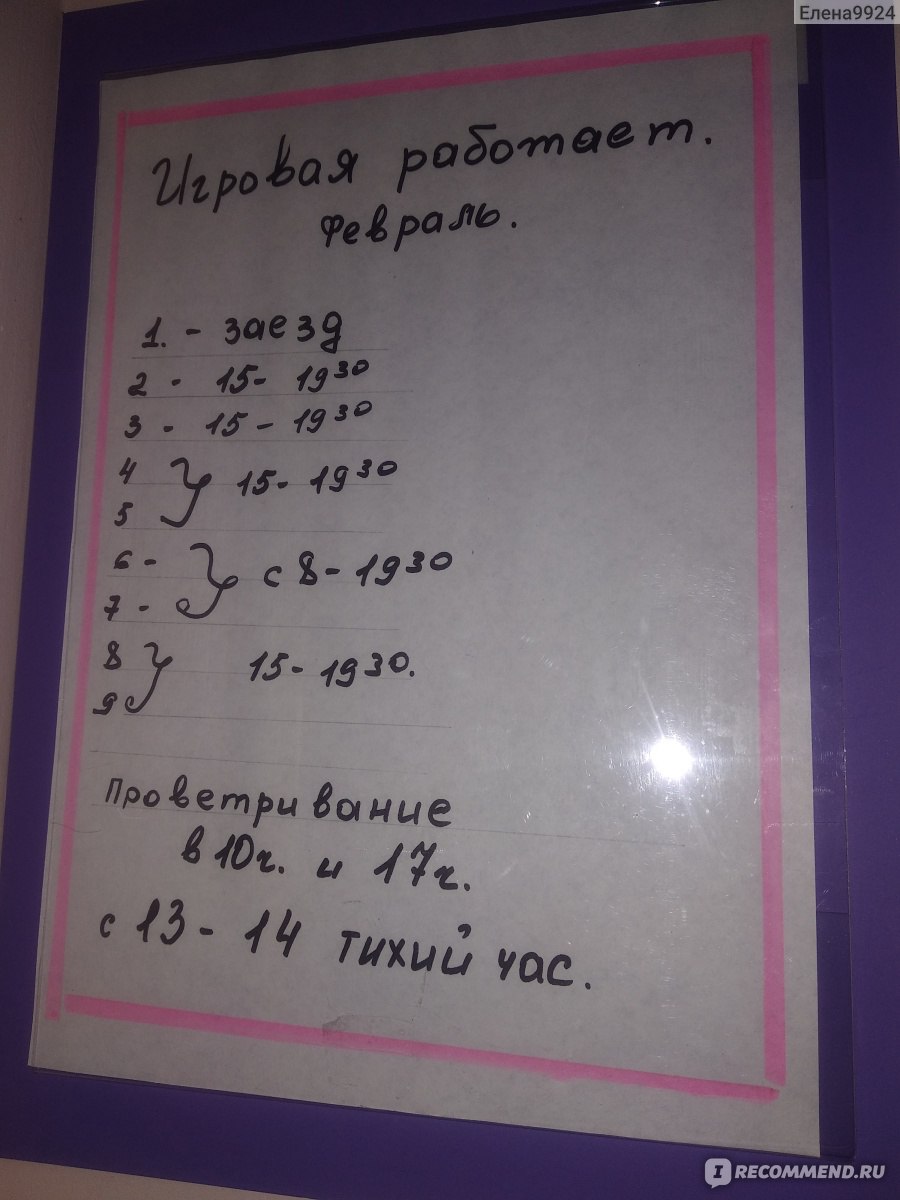 Елена9924
Игровая работает.
Февраль.
1. - заезд
2 - 15- 19³⁰
3 - 15 - 19³⁰
4
5 } 15- 19³⁰
6 -
7 - } с 8 - 19³⁰
8
9 } 15 - 19³⁰.
Проветривание
в 10ч. и 17ч.
с 13 - 14 тихий час.
IRECOMMEND.RU